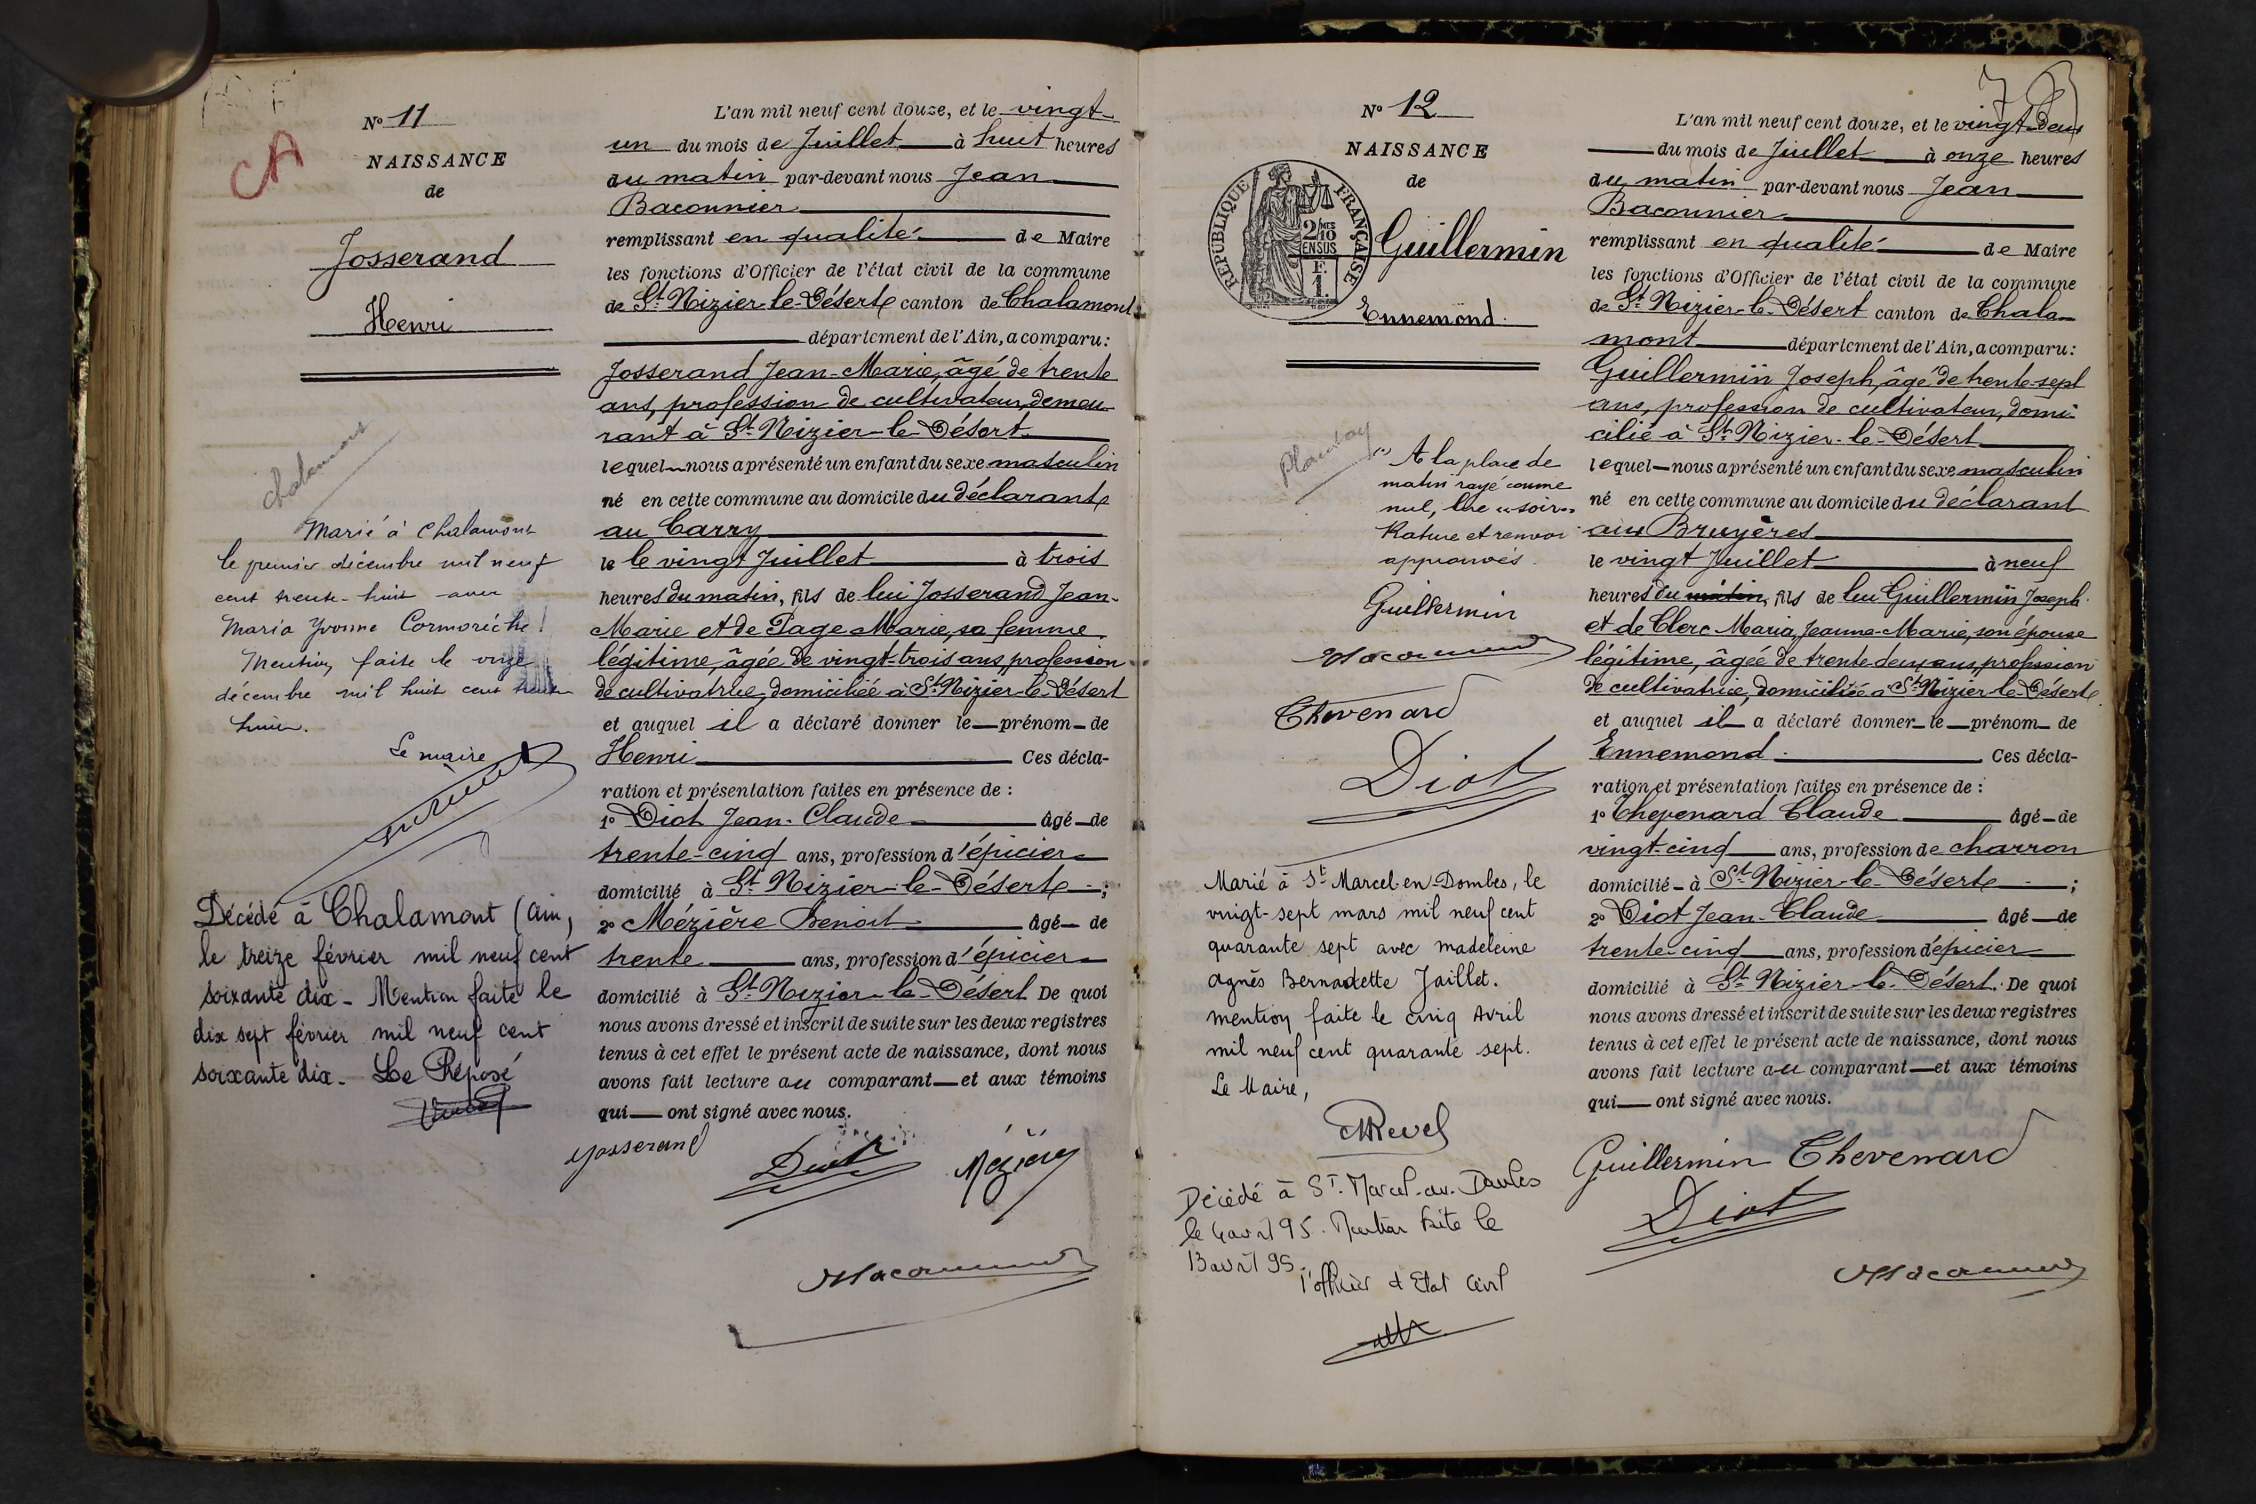 CA
N° 11
NAISSANCE
de
Josserand
Henri
Chalamont
Marié à Chalamont
le premier décembre mil neuf
cent trente-huit avec
Maria Yvonne Cormorèche
Mention faite le onze
décembre mil huit cent trente
huit.
Le maire
Décédé à Chalamont (Ain,
le treize février mil neuf cent
soixante dix - Mention faite le
dix sept février mil neuf cent
soixante dix - Le Préposé
L'an mil neuf cent douze, et le vingt-
un du mois de Juillet à huit heures
du matin par-devant nous Jean
Baconnier
remplissant en qualité de Maire
les fonctions d'Officier de l'état civil de la commune
de St Nizier-le-Désert canton de Chalamont
département de l'Ain, a comparu:
Josserand Jean-Marie, âgé de trente
ans, profession de cultivateur, demeu-
rant à St Nizier-le-Désert
lequel nous a présenté un enfant du sexe masculin
né en cette commune au domicile du déclarant
au Carry
le le vingt Juillet à trois
heures du matin, fils de lui Josserand Jean-
Marie et de Page Marie, sa femme
légitime, âgée de vingt-trois ans, profession
de cultivatrice, domiciliée à St Nizier-le-Désert
et auquel il a déclaré donner le prénom de
Henri Ces décla-
ration et présentation faites en présence de :
1° Diot Jean-Claude âgé de
trente-cinq ans, profession d'épicier
domicilié à St Nizier-le-Désert ;
2° Mézière Benoit âgé de
trente ans, profession d'épicier
domicilié à St Nizier-le-Désert De quoi
nous avons dressé et inscrit de suite sur les deux registres
tenus à cet effet le présent acte de naissance, dont nous
avons fait lecture au comparant et aux témoins
qui ont signé avec nous.
Josserand
Diot
Mézière
Baconnier
N° 12
NAISSANCE
de
RÉPUBLIQUE FRANÇAISE
2/10 MES
EN SUS
F.
1.
Guillermin
Ennemond.
Plantay
(1) A la place de
matin rayé comme
nul, lire "soir"
Rature et renvoi
approuvés.
Guillermin
Baconnier
Chevenard
Diot
Marié à St Marcel-en-Dombes, le
vingt-sept mars mil neuf cent
quarante sept avec Madeleine
Agnès Bernadette Jaillet.
mention faite le cinq Avril
mil neuf cent quarante sept.
Le Maire,
Revel
Décédé à St. Marcel-en-Dombes
le 4 avril 95. Mention faite le
13 avril 95.
l'officier d'Etat Civil
L'an mil neuf cent douze, et le vingt-deux
du mois de Juillet à onze heures
du matin par-devant nous Jean
Baconnier
remplissant en qualité de Maire
les fonctions d'Officier de l'état civil de la commune
de St Nizier-le-Désert canton de Chala-
mont département de l'Ain, a comparu:
Guillermin Joseph, âgé de trente-sept
ans, profession de cultivateur, domi-
cilié à St Nizier-le-Désert
lequel nous a présenté un enfant du sexe masculin
né en cette commune au domicile du déclarant
aux Bruyères
le vingt Juillet à neuf
heures du matin, fils de lui Guillermin Joseph
et de Clerc Maria, Jeanne-Marie, son épouse
légitime, âgée de trente-deux ans, profession
de cultivatrice, domiciliée à St Nizier-le-Désert.
et auquel il a déclaré donner le prénom de
Ennemond. Ces décla-
ration et présentation faites en présence de :
1° Chevenard Claude âgé de
vingt-cinq ans, profession de charron
domicilié à St Nizier-le-Désert ;
2° Diot Jean-Claude âgé de
trente-cinq ans, profession d'épicier
domicilié à St Nizier-le-Désert. De quoi
nous avons dressé et inscrit de suite sur les deux registres
tenus à cet effet le présent acte de naissance, dont nous
avons fait lecture au comparant et aux témoins
qui ont signé avec nous.
Guillermin Chevenard
Diot
Baconnier